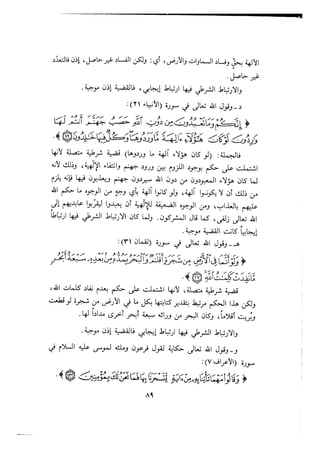 الآلهة بحق وفساد السماوات والأرض، أي: ولكن الفساد غير حاصل، إذن فالتعدد
غير حاصل.
والارتباط الشرطي فيها ارتباط إيجابي، فالقضية إذن موجبة.
د ـ وقول الله تعالى في سورة (الأنبياء ٢١):
﴿ إِنَّكُمْ وَمَا تَعْبُدُونَ مِن دُونِ اللَّهِ حَصَبُ جَهَنَّمَ أَنتُمْ لَهَا
وَارِدُونَ لَوْ كَانَ هَٰؤُلَاءِ آلِهَةً مَّا وَرَدُوهَا وَكُلٌّ فِيهَا خَالِدُونَ ﴾.
فالجملة: (لو كان هؤلاء آلهة ما وردوها) قضية شرطية متصلة لأنها
اشتملت على حكم بوجود اللزوم بين ورود جهنم وانتفاء الإلهية، وذلك لأنه
لما كان هؤلاء المعبودون من دون الله سيردون جهنم ويعذبون فيها فإنه يلزم
من ذلك أن لا يكونوا آلهة، ولو كانوا آلهة بأي وجه من الوجوه ما حكم الله
عليهم بالعذاب، ومن الوجوه الضعيفة للإلهية أن يعبدوا ليقربوا عابديهم إلى
الله تعالى زلفى، كما قال المشركون. ولما كان الارتباط الشرطي فيها ارتباطاً
إيجابياً كانت القضية موجبة.
هـ ـ وقول الله تعالى في سورة (لقمان ٣١):
﴿ وَلَوْ أَنَّمَا فِي الْأَرْضِ مِن شَجَرَةٍ أَقْلَامٌ وَالْبَحْرُ يَمُدُّهُ مِن بَعْدِهِ سَبْعَةُ أَبْحُرٍ
مَّا نَفِدَتْ كَلِمَاتُ اللَّهِ ﴾.
قضية شرطية متصلة، لأنها اشتملت على حكم بعدم نفاد كلمات الله،
ولكن هذا الحكم مرتبط بتقدير كتابتها بكل ما في الأرض من شجرة لو قطعت
وبُريت أقلاماً، وكان البحر من ورائه سبعة أبحر أخرى مداداً لها.
والارتباط الشرطي فيها ارتباط إيجابي فالقضية إذن موجبة.
و ـ وقول الله تعالى حكاية لقول فرعون وملئه لموسى عليه السلام في
سورة (الأعراف ٧):
﴿ وَقَالُوا مَهْمَا تَأْتِنَا بِهِ مِنْ آيَةٍ لِّتَسْحَرَنَا بِهَا فَمَا نَحْنُ لَكَ بِمُؤْمِنِينَ ﴾.
٨٩